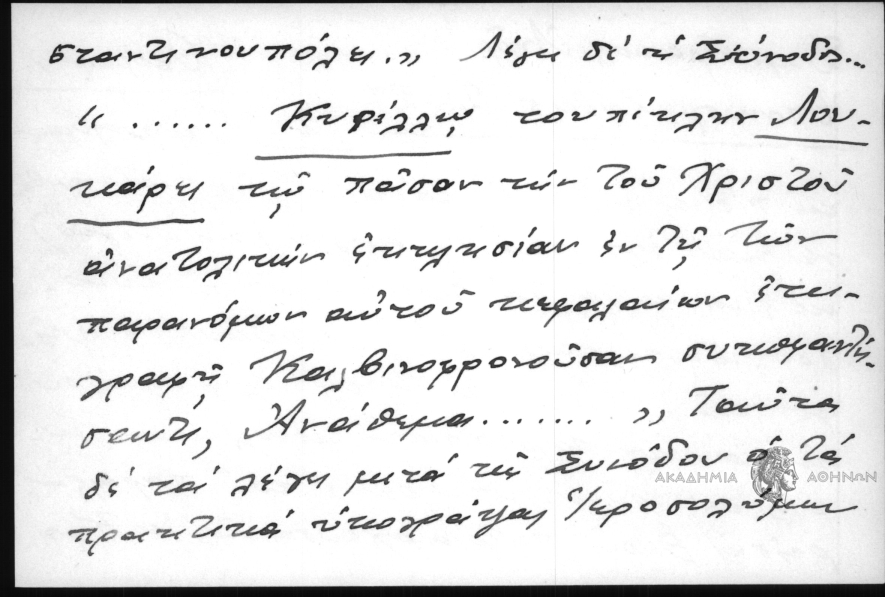 σταντινουπόλει.,, Λέγει δέ ἡ Σύνοδος...
"...... Κυρίλλῳ τοὐπίκλην Λου-
κάρει τῷ πᾶσαν τήν τοῦ Χριστοῦ
ἀνατολικήν ἐκκλησίαν ἐν τῇ τῶν
παρανόμων αὐτοῦ κεφαλαίων ἐπι-
γραφῇ Καλβινοφρονοῦσαν συκοφαντή-
σαντι, Ἀνάθεμα........,, Ταῦτα
δέ τά λέγει μετά τῆς Συνόδου ὁ τά
πρακτικά ὑπογράψας Ἱεροσολύμων
ΑΚΑΔΗΜΙΑ ΑΘΗΝΩΝ